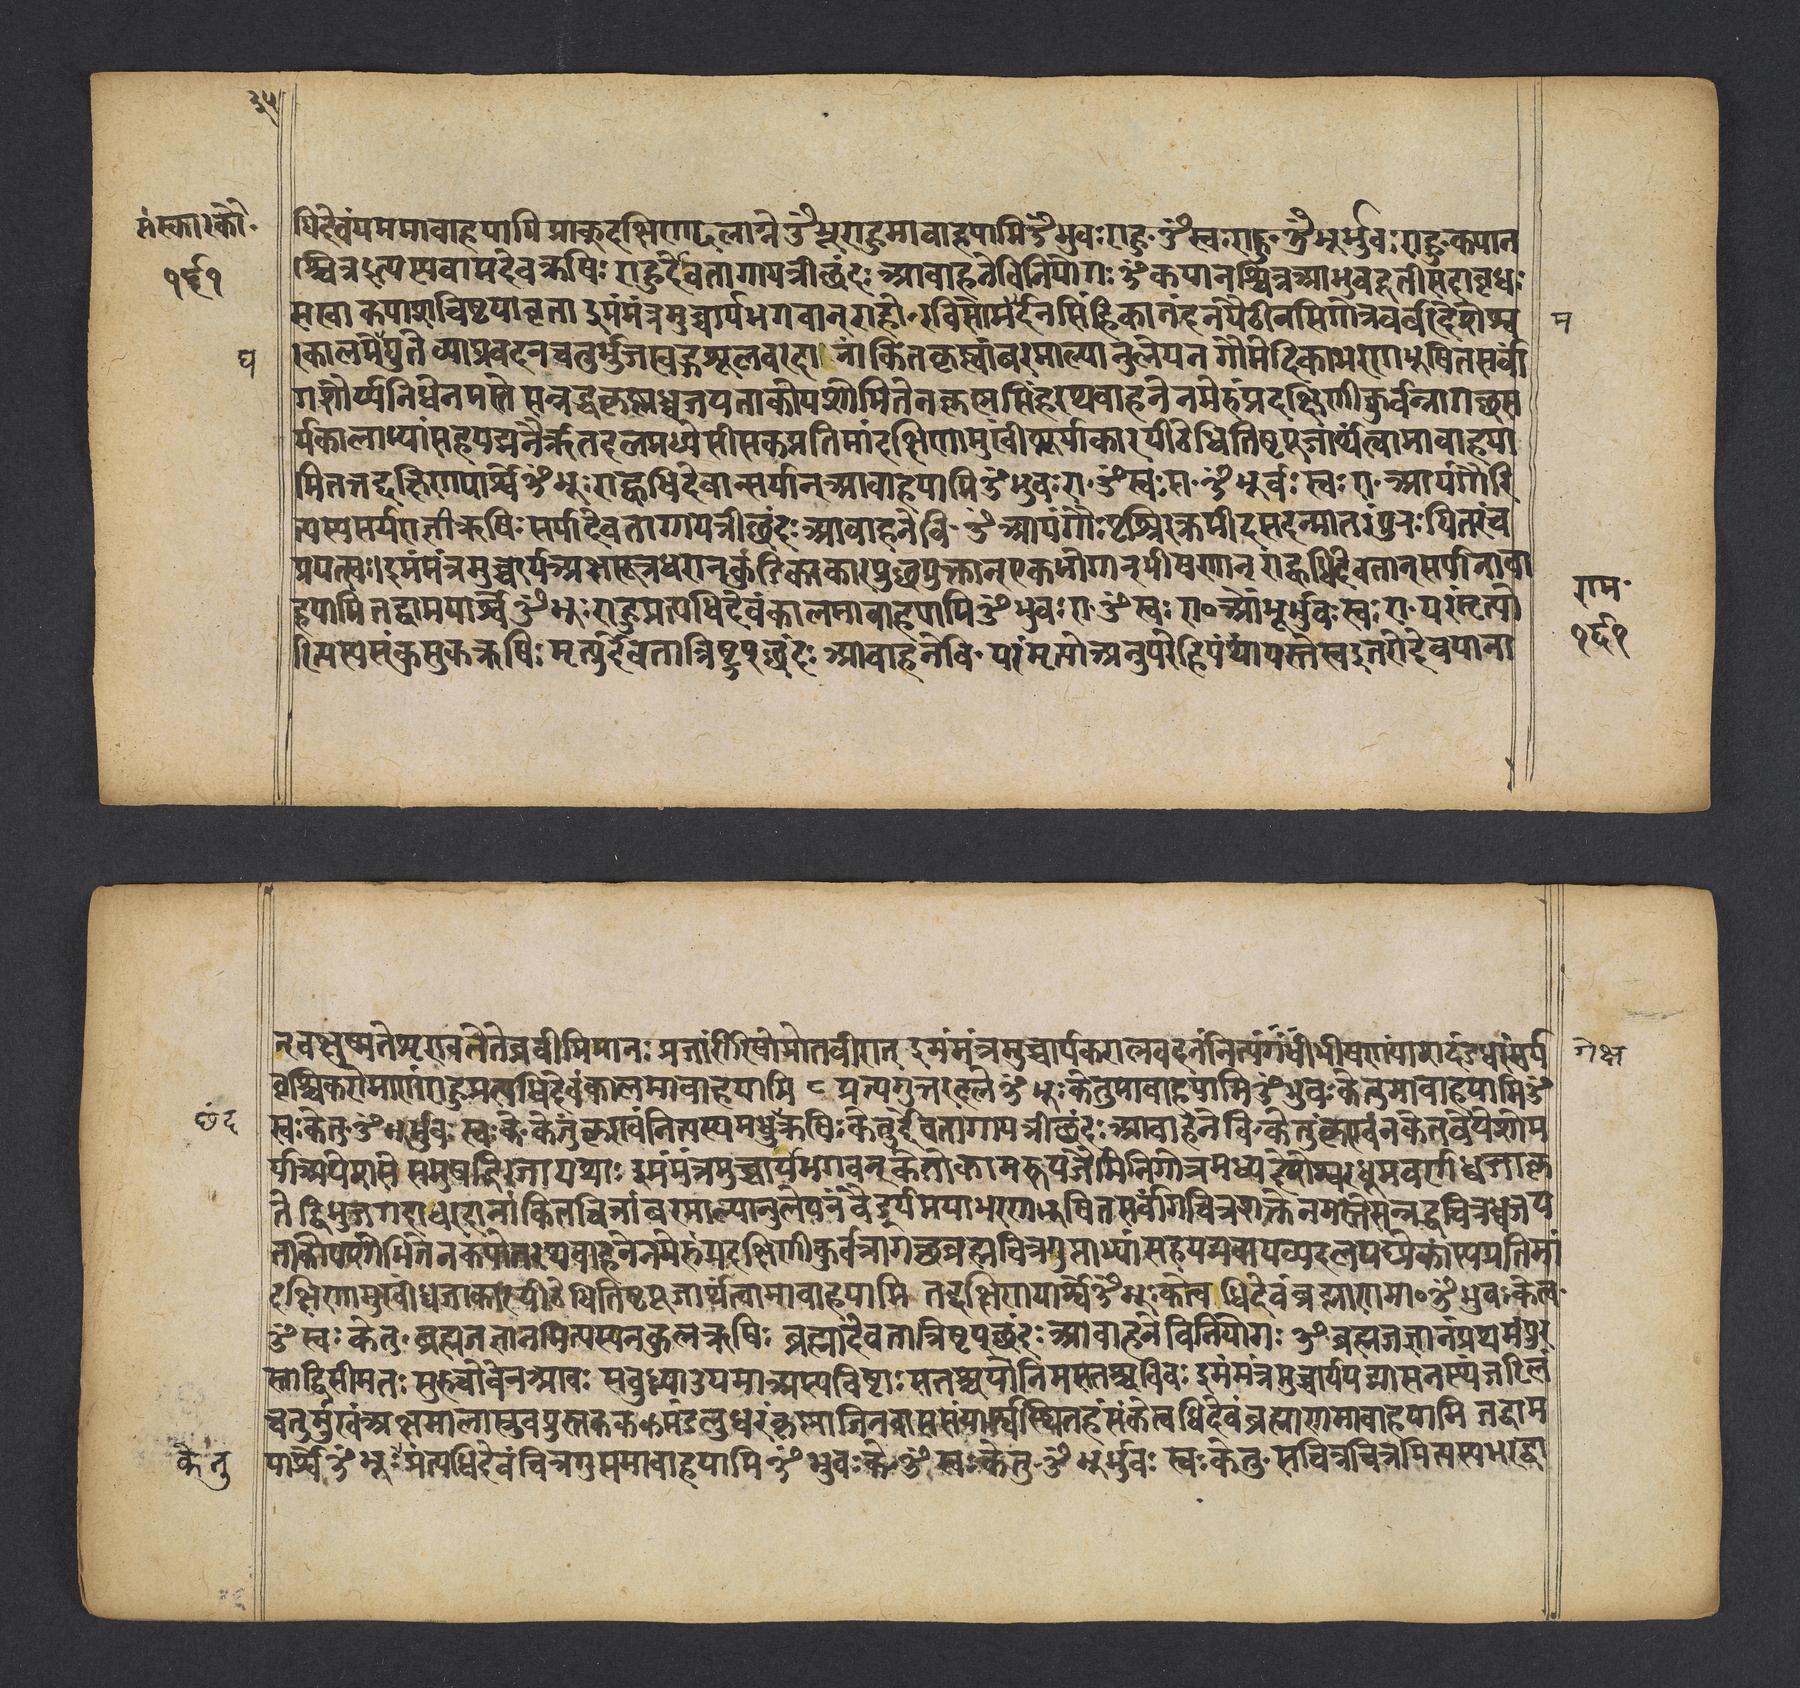 ३५
संस्कारकौ॰
१६१
धिदेवंयममावाहयामि प्राक्रुदक्षिणादलाग्रे ॐ भूराहुमावाहयामि ॐ भुवःराहु॰ ॐ स्वःराहु॰ ॐ भूर्भुवःराहु॰ कयान
श्चित्रइत्यस्यवामदेवऋषिः राहुर्देवतागायत्रीछंदः आवाहनेविनियोगः ॐ कयानश्चित्रआभुवदूतीसदावृधः
सखा कयाशचिष्टयावृता इमंमंत्रमुच्चार्यभगवान्राहोरविसोममर्दनसिंहिकानंदनपैठीनसिगोत्रबर्बरदेशेश्व
घ
म
रकालमेघद्युते व्याघ्रवदनचतुर्भुजखड्गशूलवराहा नांकितकृष्णांबरमाल्यानुलेपन गोमेदिकाभरणभूषितसर्वां
गशौर्यनिधेनमस्ते सन्नद्धकृष्णध्वजपताकोपशोभितेनकृष्णसिंहरथवाहनेनमेरुंप्रदक्षिणीकुर्वन्नागछस
र्पकालाभ्यांसहपद्मनैर्ऋतदलमध्येसीसकप्रतिमांदक्षिणामुखींशूर्पाकारपीठेधितिष्ठपूजार्थंत्वामावाहया
मितत्तद्दक्षिणपार्श्वेॐभूःराह्वधिदेवान्सर्पान्आवाहयामि ॐ भुवःरा॰ ॐ स्वःरा॰ ॐ भूर्भुवःस्वःरा॰ आयंगौरि
त्यस्यसर्पराज्ञीऋषिः सर्पादेवतागायत्रीछंदः आवाहनेवि॰ ॐ आयंगौःपृश्निरक्रमीदसदन्मातरंपुरः पितरंच
प्रयत्स्वः। इमंमंत्रमुच्चार्यअक्षसूत्रधरान्कुंडिकाकारपुछयुक्तान्एकभोगान्भीषणान् राह्वधिदेवतान्सर्पानावा
हयामि तद्वामपार्श्वे ॐ भूःराहुप्रत्यधिदेवंकालमावाहयामि ॐ भुवःरा॰ ॐ स्वः रा॰ ओंभूर्भुवः स्वः रा॰ परंमृत्यो
रित्यस्यसंकुसुकऋषिः मृत्युर्देवतात्रिष्टुप्छंदः आवाहनेवि॰ परंमृत्योअनुपरेहिपंथांयस्तेस्वइतरोदेवयाना
राम॰
१६१
तचक्षुष्मतेशृण्वतेतेब्रवीमिमानः प्रजांरीरिषोमोतवीरान् इमंमंत्रमुच्चार्यकरालवदनंनित्यंगंधीभीषणंपाशदंडधरंसर्प
वृश्चिकरोमाणंराहुप्रत्यधिदेवंकालमावाहयामि ८ प्रत्यगुत्तरदले ॐ भूः केतुमावाहयामि ॐ भुवःकेतुमावाहयामि ॐ
स्वःकेतु॰ ॐ भूर्भुवः स्वःके॰ केतुंकृण्वन्नित्यस्यमधुछऋषिः केतुर्देवतागायत्रीछंदः आवाहनेवि॰ केतुंकृण्वन्नकेतवेपेशोम
र्याअपेशसे समुषद्भिरजायथाः इमंमंत्रमुच्चार्यभगवन्केतोकामरूपजैमिनिगोत्रमध्यदेशेश्वरधूम्रवर्णध्वजाकृ
ते द्विभुजगदाधरदानांकितचित्रांबरमाल्यानुलेपनंवैडूर्यमयाभरणभूषितसर्वांगचित्रशक्तेनमस्तेसन्नद्धचित्रध्वजप
ताकोपशोभितेनकपोतरथवाहनेनमेरुंप्रदक्षिणीकुर्वन्नागछब्रह्मचित्रगुप्ताभ्यांसहपद्मवायव्यदलमध्येकांस्यप्रतिमां
दक्षिणामुखींध्वजाकारपीठेधितिष्ठपूजार्थंत्वामावाहयामि तद्दक्षिणपार्श्वेॐभूःकेत्वधिदेवंब्रह्माणमा॰ॐभुवःकेत्व॰
ॐ स्वः केतु॰ ब्रह्मजज्ञानमित्यस्यनकुलऋषिः ब्रह्मादेवतात्रिष्टुप्छंदः आवाहने विनियोगः ॐ ब्रह्मजज्ञानंप्रथमंपुर
स्ताद्विसीमतः सुरुचोवेनआवः सबुध्न्याउपमाअस्यविष्ठाः सतश्चयोनिमसतश्चविवः इमंमंत्रमुच्चार्यपद्मासनस्थंजटिलं
चतुर्मुखंअक्षमालास्रुवपुस्तककमंडलुधरंकृष्णाजिनवाससंपार्श्वस्थितहंसंकेत्वधिदेवंब्रह्माणमावाहयामि तद्वाम
पार्श्वे ॐ भूः प्रत्यधिदेवंचित्रगुप्तमावाहयामि ॐ भुवःके॰ ॐ स्वःकेतु॰ ॐ भूर्भुवः स्वःकेतु॰ सचित्रचित्रमित्यस्यभरद्वा
छंद
केतु